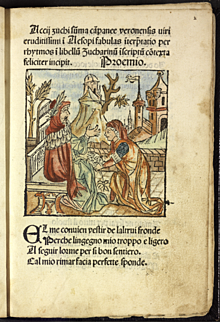 Accij zuchi summa cãpanee veronensis viri
eruditissimi i Aesopi fabulas iterp̃tatio per
rhythmos i libellũ Zucharinũ iscriptũ cõtexta
feliciter incipit. Proemio.
EL me convien vestir de laltrui fronde
Perche lingegno mio troppo e ligero
A seguir lorme per si bon sentiero.
Cal mio rimar facia perfette sponde.